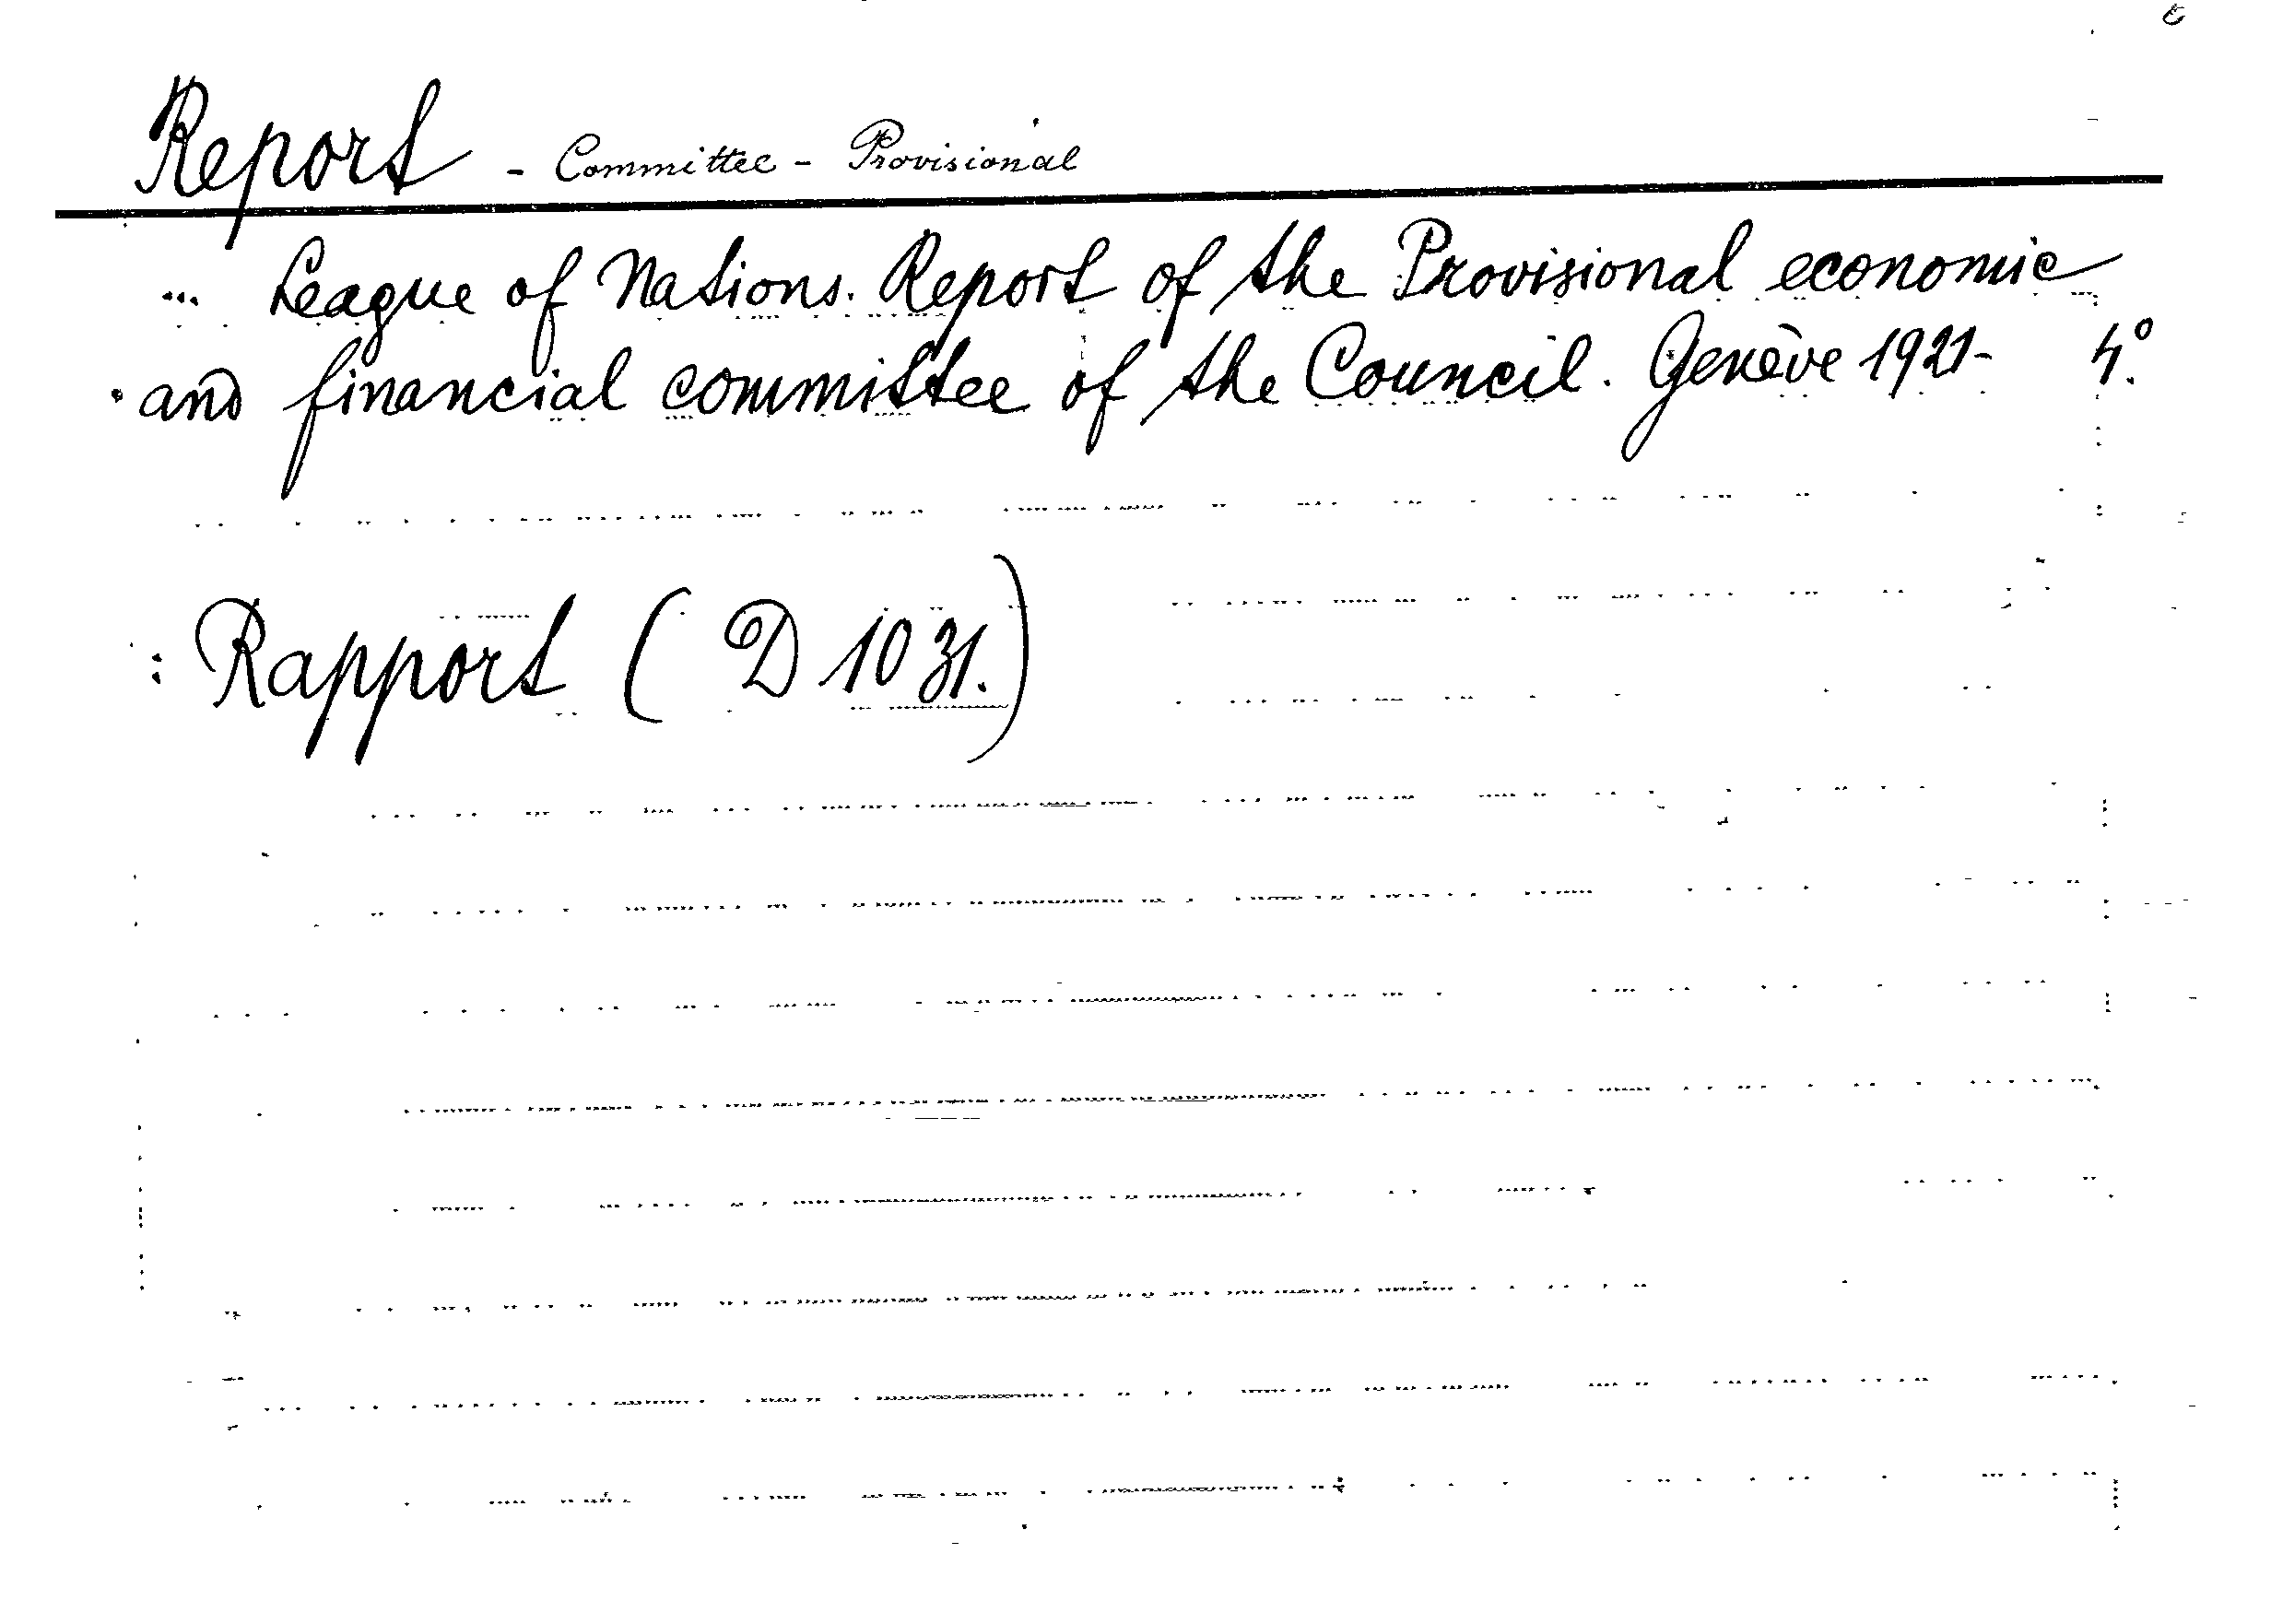 Report - Committee - Provisional
... League of Nations. Report of the Provisional economic
and financial committee of the Council. Genève 1921- 4°.
: Rapport ( D 1031.)